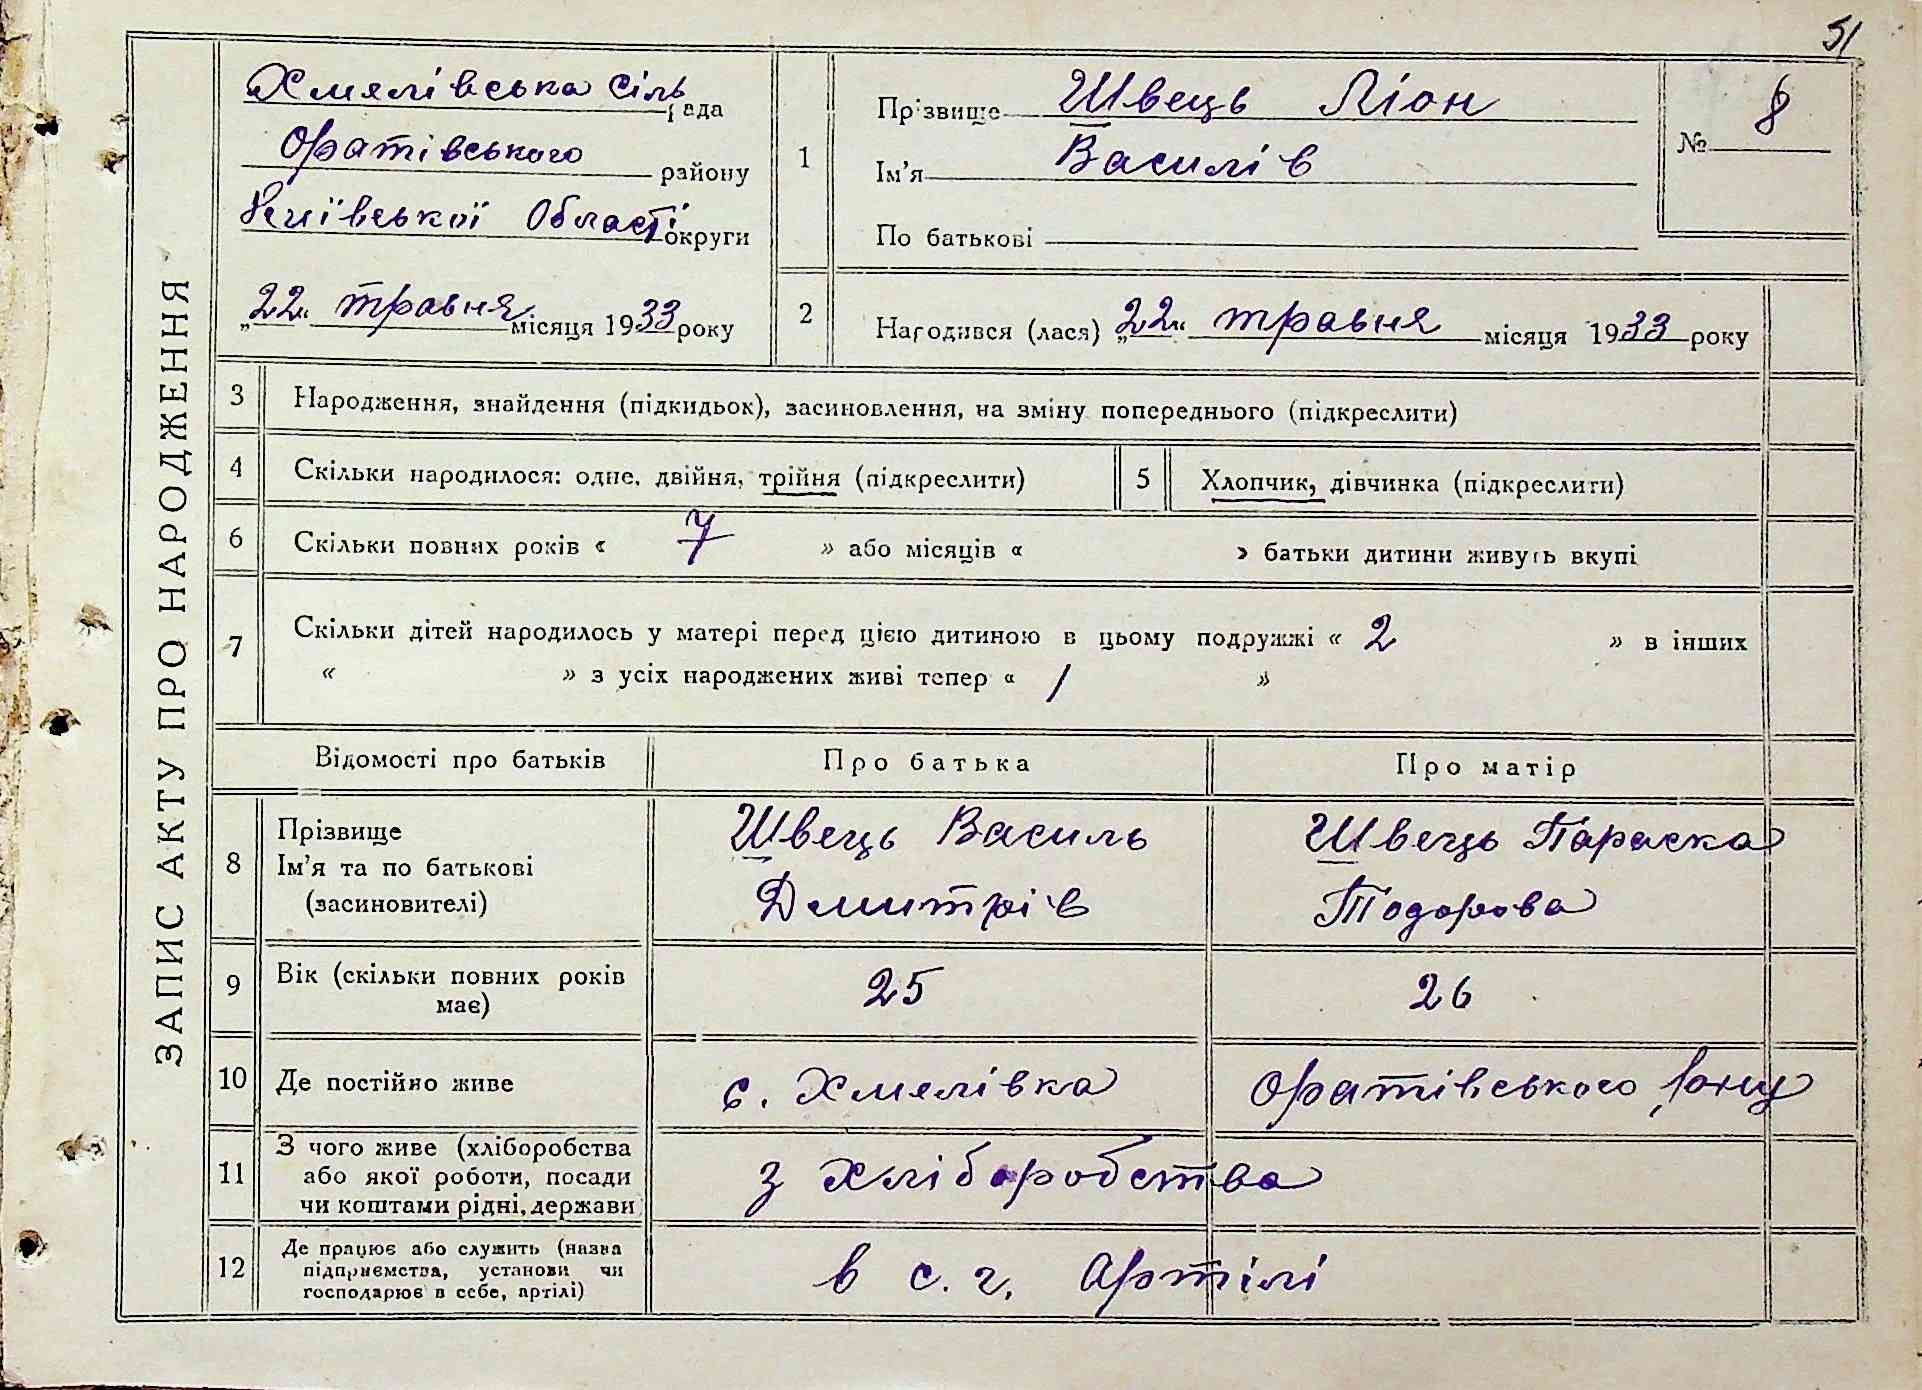 51
ЗАПИС АКТУ ПРО НАРОДЖЕННЯ
Хмелівська сіль рада
Оратівського району
Київської Області округи
„22“ травня місяця 1933 року
1
Прізвище Швець Ліон
Ім'я Василів
По батькові
№ 8
2
Народився (лася) „22“ травня місяця 1933 року
3 Народження, знайдення (підкидьок), засиновлення, на зміну попереднього (підкреслити)
4 Скільки народилося: одне, двійня, трійня (підкреслити)
5 Хлопчик, дівчинка (підкреслити)
6 Скільки повних років « 7 » або місяців « » батьки дитини живуть вкупі
7 Скільки дітей народилось у матері перед цією дитиною в цьому подружжі « 2 » в інших
« » з усіх народжених живі тепер « 1 »
Відомості про батьків Про батька Про матір
8 Прізвище Ім'я та по батькові (засиновителі)
Швець Василь Дмитрів
Швець Параска Тодорова
9 Вік (скільки повних років має) 25 26
10 Де постійно живе с. Хмелівка Оратівського р-ну
11 З чого живе (хліборобства або якої роботи, посади чи коштами рідні, держави
з хліборобства
12 Де працює або служить (назва підприємства, установи чи господарює в себе, артілі)
в с. г. Артілі